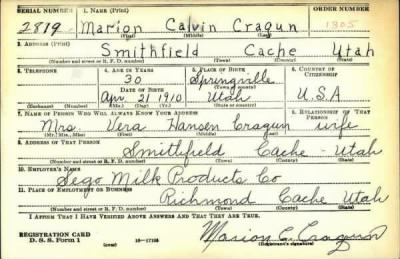 SERIAL NUMBER 1. NAME (Print) ORDER NUMBER
2819 Marion Calvin Cragun 1305
(First) (Middle) (Last)
2. ADDRESS (Print)
Smithfield Cache Utah
(Number and street or R. F. D. number) (Town) (County) (State)
3. TELEPHONE 4. AGE IN YEARS 5. PLACE OF BIRTH 6. COUNTRY OF CITIZENSHIP
30 Springville
DATE OF BIRTH (Town or county)
Apr. 1910 Utah U.S.A
(Exchange) (Number) (Mo.) (Day) (Yr.) (State or country)
7. NAME OF PERSON WHO WILL ALWAYS KNOW YOUR ADDRESS 8. RELATIONSHIP OF THAT PERSON
Mrs. Vera Hansen Cragun wife
(Mr., Mrs., Miss) (First) (Middle) (Last)
9. ADDRESS OF THAT PERSON
Smithfield Cache - Utah
(Number and street or R. F. D. number) (Town) (County) (State)
10. EMPLOYER'S NAME
Sego Milk Products Co
11. PLACE OF EMPLOYMENT OR BUSINESS
Richmond Cache Utah
(Number and street or R. F. D. number) (Town) (County) (State)
I AFFIRM THAT I HAVE VERIFIED ABOVE ANSWERS AND THAT THEY ARE TRUE.
REGISTRATION CARD
D. S. S. Form 1 16-17105 Marion C. Cragun
(Registrant's signature)